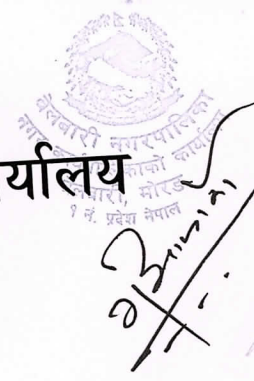 बेलबारी नगरपालिका
नगर कार्यपालिकाको कार्यालय
र्यालय
बेलबारी, मोरङ
१ नं. प्रदेश नेपाल